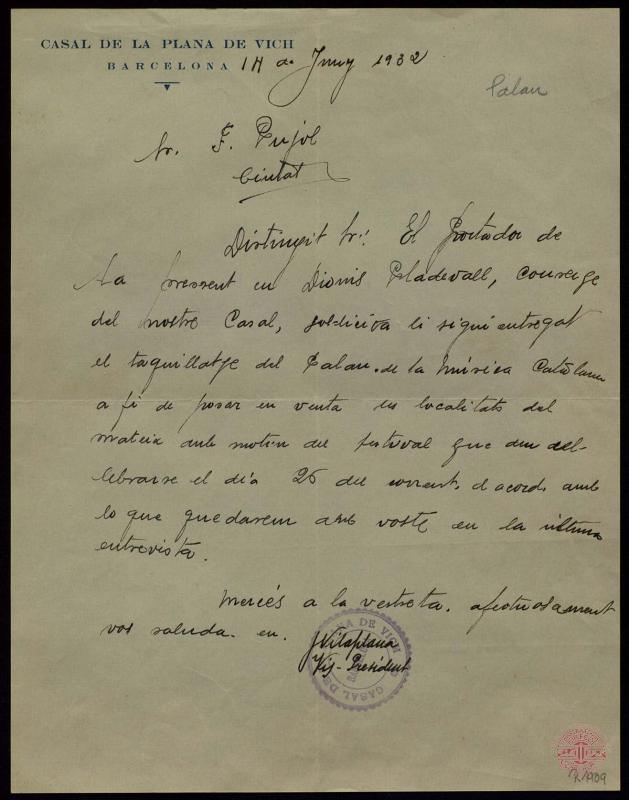 CASAL DE LA PLANA DE VICH
BARCELONA 14 de Juny 1932
Palau
Sr. F. Pujol
Ciutat
Distingit Sr: El portador de
la present en Dionis Pladevall, conserge
del nostre Casal, sol-licita li sigui entregat
el taquillatge del Palau de la Música Catalana
a fi de posar en venta les localitats del
mateix amb motiu del festival que deu cel-
lebrarse el día 26 del corrent, d'acord amb
lo que quedarem amb vosté en la ultima
entrevista.
Mercés a la vestreta. afectuosament
vos saluda. en.
J Vilaplana
Vis-President
CASAL DE LA PLANA DE VICH